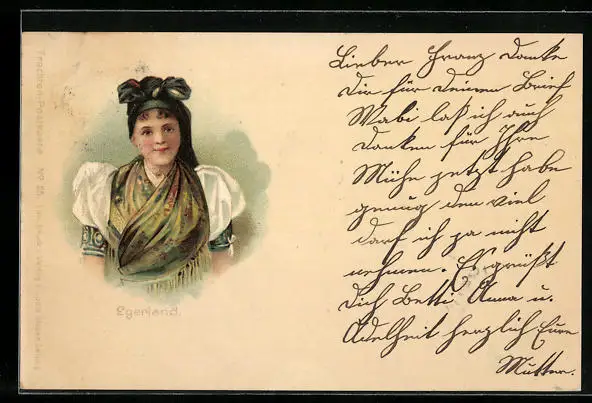 Lieber Franz Danke
Dir für deinen Brief
Wabi laß ich auch
danken für Ihre
Mühe jetzt habe
genug den viel
darf ich ja nicht
nehmen. Es grüßt
Dich Betti Anna u.
Adelheit herzlich Eure
Mutter.
Egerland.
Trachten-Postkarte No 25